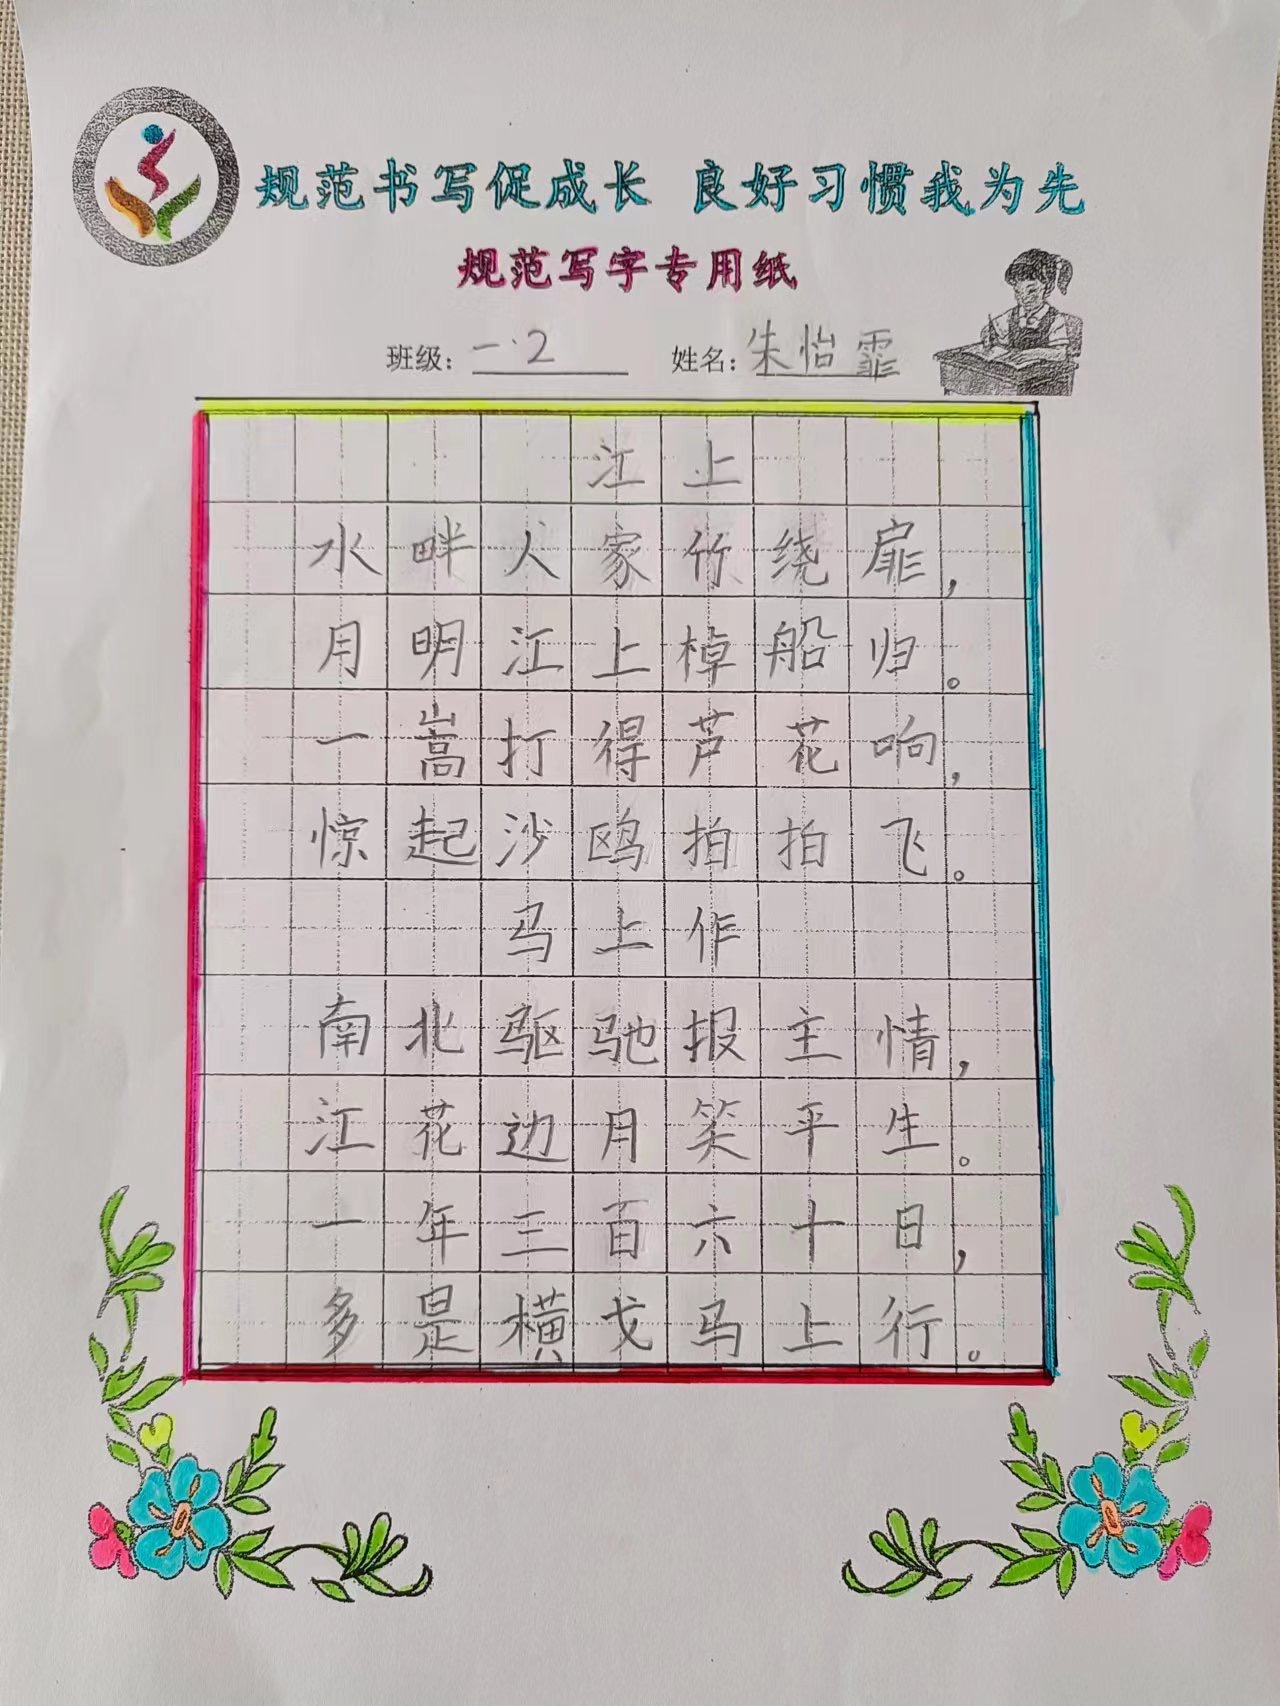 规范书写促成长 良好习惯我为先
规范写字专用纸
班级：一·2 姓名：朱怡霏
江上
水畔人家竹绕扉，
月明江上棹船归。
一嵩打得芦花响，
惊起沙鸥拍拍飞。
马上作
南北驱驰报主情，
江花边月笑平生。
一年三百六十日，
多是横戈马上行。